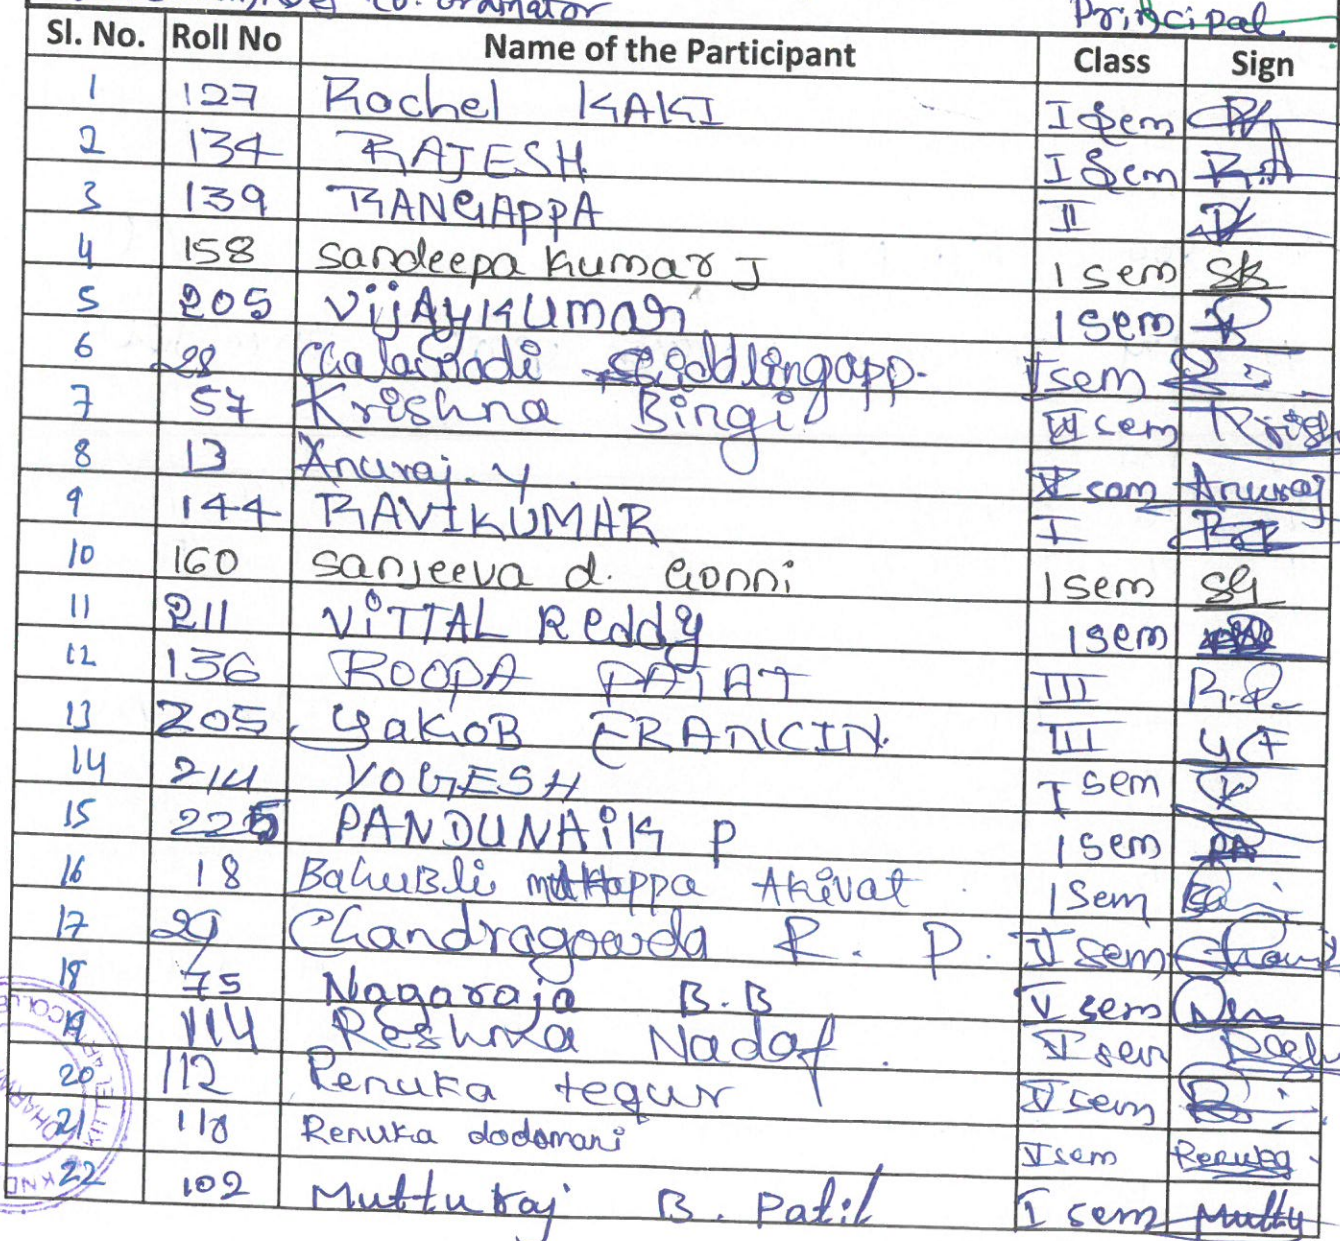 Co-ordinator Principal
Sl. No. Roll No Name of the Participant Class Sign
1 127 Rachel KAKI I Sem
2 134 RAJESH I Sem R.A
3 139 RANGAPPA II
4 158 Sandeepa Kumar J I sem SK
5 205 VijAyKumar I sem
6 28 Chalawadi Siddlingapp. V sem
7 57 Krishna Bingi VI sem Krish
8 13 Anuraj. Y. V sem Anuraj
9 144 RAVIKUMAR I
10 160 Sanjeeva d. Gonni I sem SG
11 211 ViTTAL Reddy I sem
12 136 ROOPA III R.P.
13 205 YaKOB FRANCIN. III YCF
14 214 YOGESH I sem
15 225 PANDUNAiK P I sem
16 18 BahuBli Akivat I Sem
17 29 Chandragowda R. P. V sem
18 75 Nagaraja B.B V sem
19 114 Reshma Nadaf. V sem
20 112 Renuka tegur V sem
21 118 Renuka dodamani V sem Renuka
22 102 Mutturaj B. Patil I sem Muttu